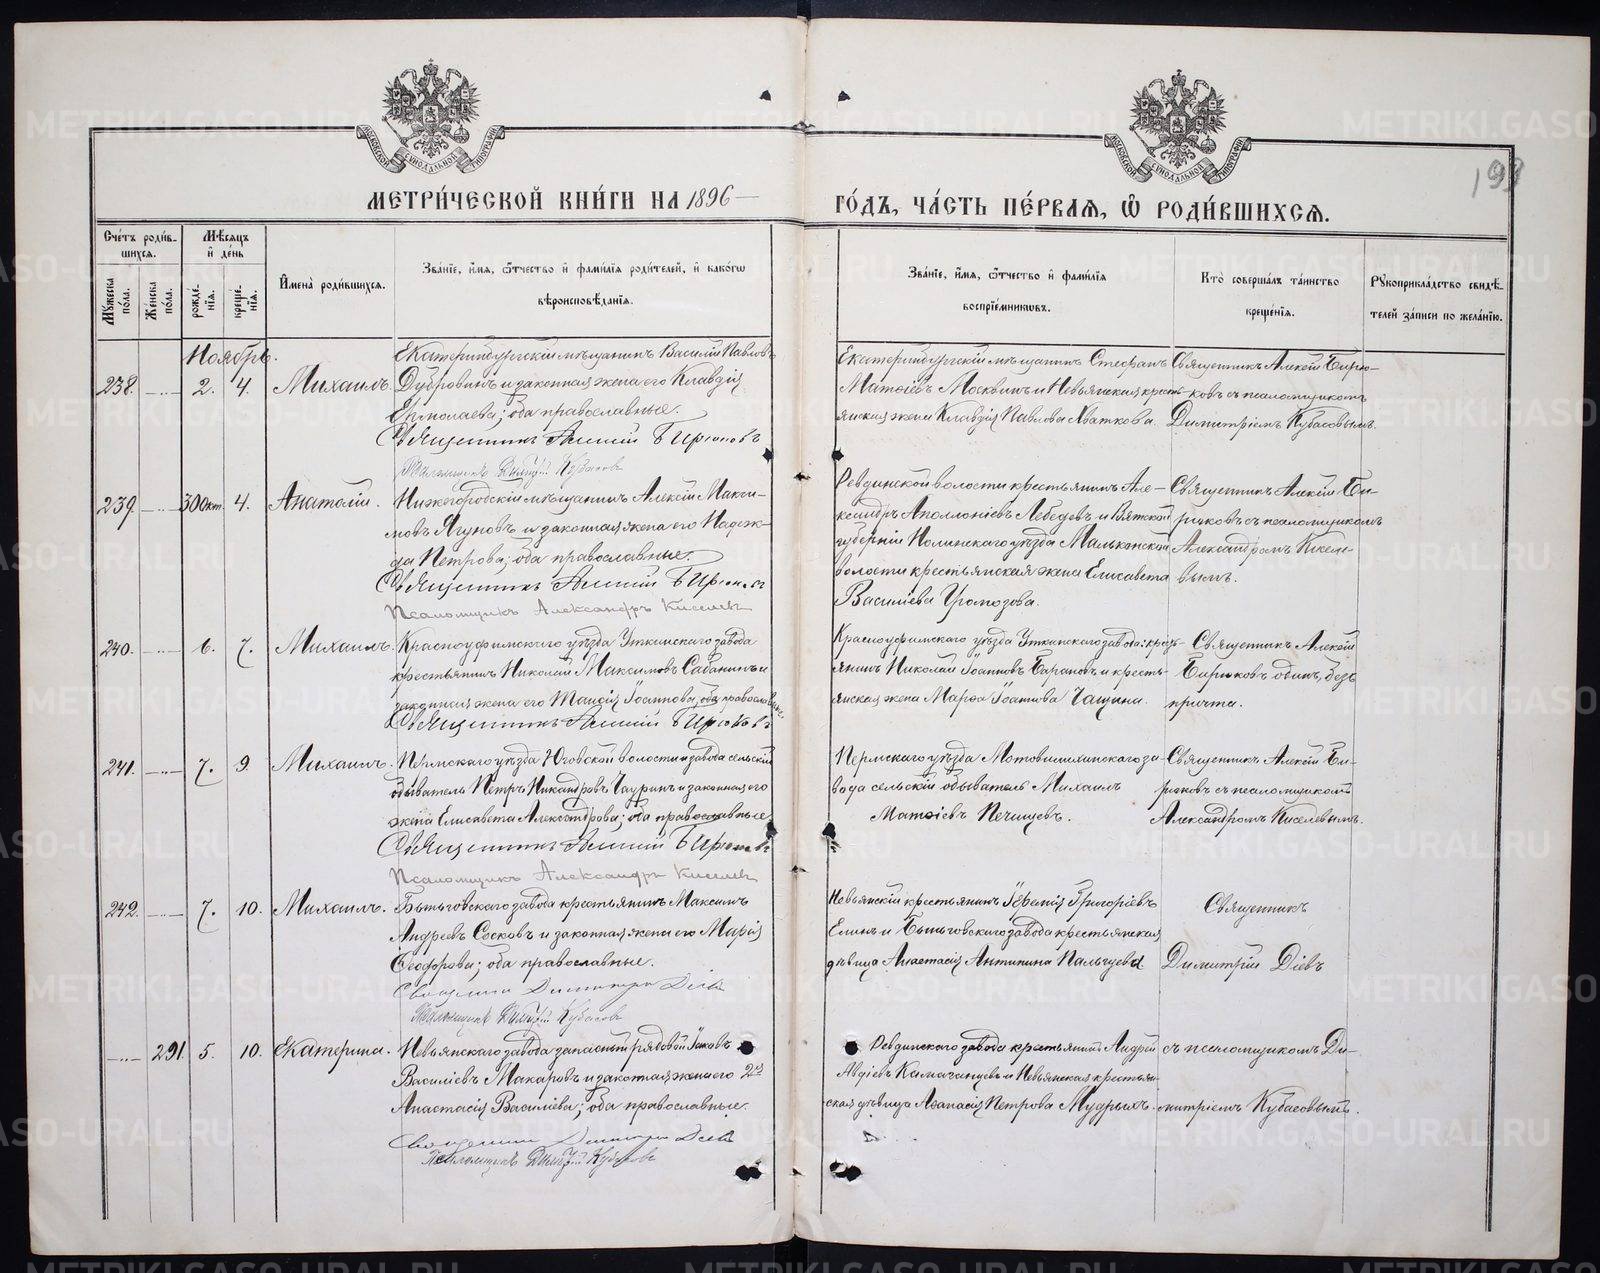 МЕТРИ́ЧЕСКОЙ КНИ́ГИ НА 1896 —
ГО́ДЪ, ЧА́СТЬ ПЕ́РВАѦ, Ѽ РОДИ́ВШИХСѦ.
МОСКОВСКОЙ СѴНОДАЛЬНОЙ ТИПОГРАФІИ
МОСКОВСКОЙ СѴНОДАЛЬНОЙ ТИПОГРАФІИ
193
Сче́тъ роди́вшихсѧ.
Мꙋ́жеска по́ла.
Же́нска по́ла.
Мѣ́сѧцъ и҆ де́нь
рожде́нїѧ.
креще́нїѧ.
И҆мена̀ роди́вшихсѧ.
Зва́нїе, и҆́мѧ, ѻ҆́тчество и҆ фами́лїѧ роди́телей, и҆ како́гѡ
вѣроисповѣ́данїѧ.
Зва́нїе, и҆́мѧ, ѻ҆́тчество и҆ фами́лїѧ
воспрїе́мникѡвъ.
Кто̀ соверша́лъ та́инство
креще́нїѧ.
Рꙋкоприкла́дство свидѣ́-
телей за́писи по жела́нїю.
Ноябрь.
238. 2. 4. Михаилъ.
Екатеринбургскій мѣщанинъ Василій Павловъ
Дубровинъ и законная жена его Клавдія
Ермолаева; оба православные.
Священникъ Алексій Бирюковъ
Псаломщикъ Димитрій Кубасовъ
Екатеринбургскій мѣщанинъ Стефанъ
Матѳіевъ Москвинъ и Невьянская кресть-
янская жена Клавдія Павлова Хваткова.
Священникъ Алексій Бирю-
ковъ съ псаломщикомъ
Димитріемъ Кубасовымъ.
239. 30 Окт. 4. Анатолій.
Нижегородскій мѣщанинъ Алексій Макси-
мовъ Ягуновъ и законная жена его Надеж-
да Петрова; оба православные.
Священникъ Алексій Бирюковъ
Псаломщикъ Александръ Киселевъ
Ревдинской волости крестьянинъ Але-
ксандръ Аполлоніевъ Лебедевъ и Вятской
губерніи Нолинскаго уѣзда Малканской
волости крестьянская жена Елисавета
Василіева Громозова.
Священникъ Алексій Би-
рюковъ съ псаломщикомъ
Александромъ Киселе-
вымъ.
240. 6. 7. Михаилъ.
Красноуфимскаго уѣзда Уткинскаго завода
крестьянинъ Николай Максимовъ Сабанинъ и
законная жена его Таисія Іоаннова; оба православные.
Священникъ Алексій Бирюковъ
Красноуфимскаго уѣзда Уткинскаго завода: кресть-
янинъ Николай Іоанновъ Барановъ и кресть-
янская жена Марѳа Іоаннова Чащина.
Священникъ Алексій
Бирюковъ одинъ, безъ
причта.
241. 7. 9. Михаилъ.
Пермскаго уѣзда Юговской волости и завода сельскій
обыватель Петръ Никандровъ Чауринъ и законная его
жена Елисавета Александрова; оба православные
Священникъ Алексій Бирюковъ
Псаломщикъ Александръ Киселевъ
Пермскаго уѣзда Мотовилихинскаго за-
вода сельскій обыватель Михаилъ
Матѳіевъ Печищевъ.
Священникъ Алексій Би-
рюковъ съ псаломщикомъ
Александромъ Киселевымъ.
242. 7. 10. Михаилъ.
Бытьговскаго завода крестьянинъ Максимъ
Андреевъ Сосковъ и законная жена его Марія
Ѳеодорова; оба православные.
Священникъ Димитрій Діевъ
Псаломщикъ Димитрій Кубасовъ
Невьянскій крестьянинъ Григоріевъ
и Бытьговскаго завода крестьянская
дѣвица Анастасія Антипина Пальцева
Священникъ
Димитрій Діевъ
291. 5. 10. Екатерина.
Невьянскаго завода запасный рядовой Іаковъ
Василіевъ Макаровъ и законная жена его 2ая
Анастасія Василіева; оба православные.
Священникъ Димитрій Діевъ
Псаломщикъ Димитрій Кубасовъ
Ревдинскаго завода крестьянинъ Андрей
Авдіевъ Камаганцевъ и Невьянская крестьян-
ская дѣвица Аѳанасія Петрова Мудрыхъ.
съ псаломщикомъ Ди-
митріемъ Кубасовымъ.
METRIKI.GASO-URAL.RU